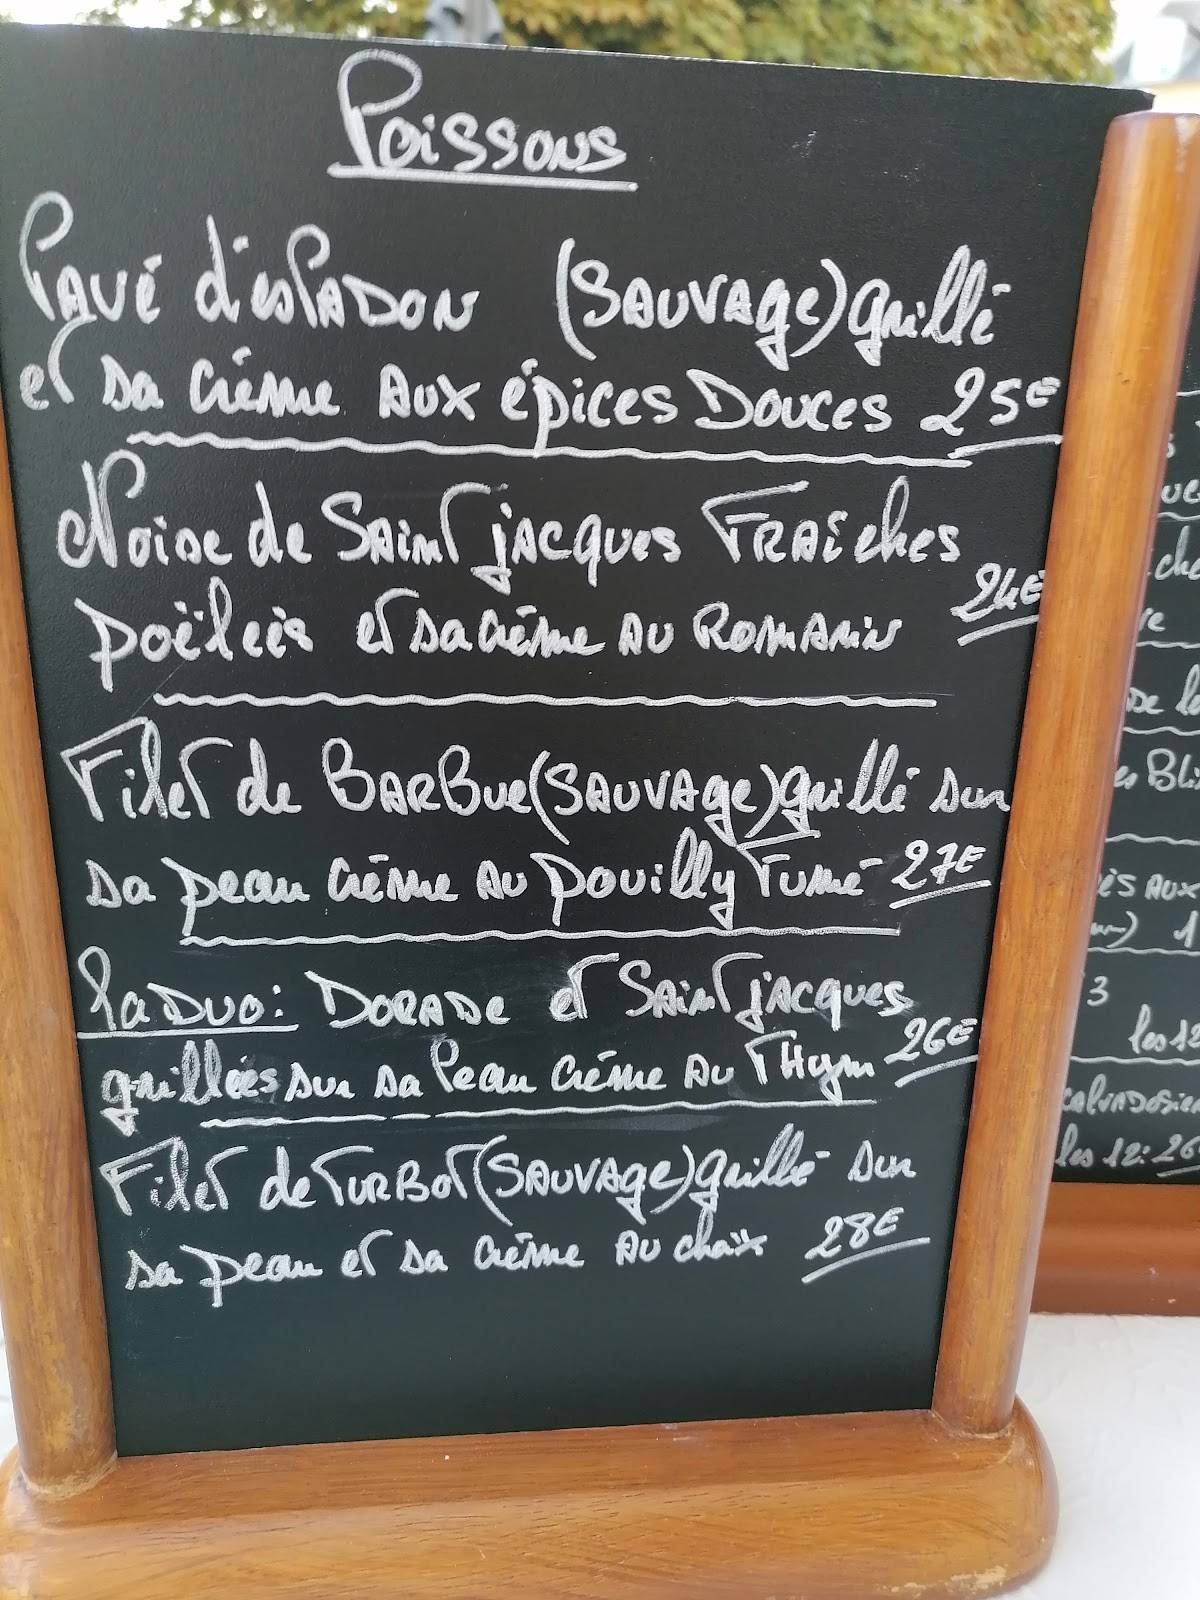 Poissons
Pavé d'espadon (sauvage) grillé
et sa crème aux épices douces 25€
Noise de Saint jacques Fraîches
poëleés et sa crème au Romarin 24€
Filet de Barbue (sauvage) grillé sur
sa peau crème au pouilly Fumé 27€
la Duo: Dorade et Saint jacques
grilleés sur sa Peau crème au Thym 26€
Filet de Turbot (sauvage) grillé sur
sa peau et sa crème au choix 28€
es Bli
es aux
3
les 12
calvadosie
les 12: 26